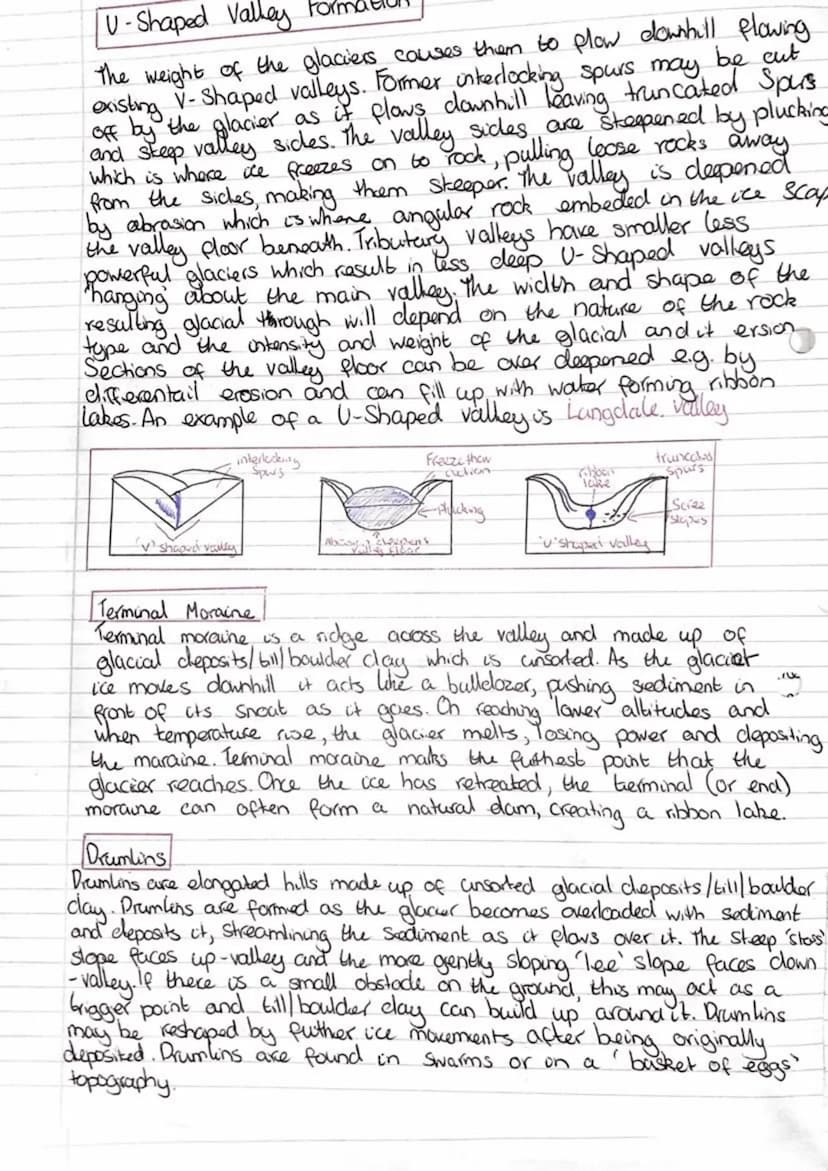 U-Shaped Valley Formation
The weight of the glaciers causes them to flow downhill flowing
existing V-Shaped valleys. Former interlocking spurs may be cut
off by the glacier as it flows downhill leaving truncated Spurs
and steep valley sides. The valley sides are steepened by plucking
which is where ice freezes on to rock, pulling loose rocks away
from the sides, making them steeper. The valley is deepened
by abrasion which is where angular rock embeded in the ice Scap
the valley floor beneath. Tributary valleys have smaller less
powerful glaciers which result in less deep U-Shaped valleys
'hanging' about the main valley. The width and shape of the
resulting glacial through will depend on the nature of the rock
type and the intensity and weight of the glacial and it ersion
Sections of the valley floor can be over deepened e.g. by
differentail erosion and can fill up with water forming ribbon
lakes. An example of a U-Shaped valley is Langdale Valley
interlocking Spurs
'V' shaped valley
Freeze thaw action
Plucking
deepens valley floor
ribbon lake
truncated spurs
Scree slopes
'U' shaped valley
Terminal Moraine
Terminal moraine is a ridge across the valley and made up of
glacial deposits/till/boulder clay which is unsorted. As the glacier
ice moves downhill it acts like a bulldozer, pushing sediment in
front of its snout as it goes. On reaching lower altitudes and
when temperature rise, the glacier melts, losing power and depositing
the maraine. Terminal moraine maks the futhest point that the
glacier reaches. Once the ice has retreated, the terminal (or end)
moraine can often form a natural dam, creating a ribbon lake.
Drumlins
Drumlins are elongated hills made up of unsorted glacial deposits/till/boulder
clay. Drumlins are formed as the glacier becomes overloaded with sediment
and deposits it, streamlining the sediment as it flows over it. The steep 'stoss'
slope faces up-valley and the more gently sloping 'lee' slope faces down
-valley. If there is a small obstacle on the ground, this may act as a
trigger point and till/boulder clay can build up around it. Drumlins
may be reshaped by futher ice movements after being originally
deposited. Drumlins are found in swarms or on a 'basket of eggs'
topography.